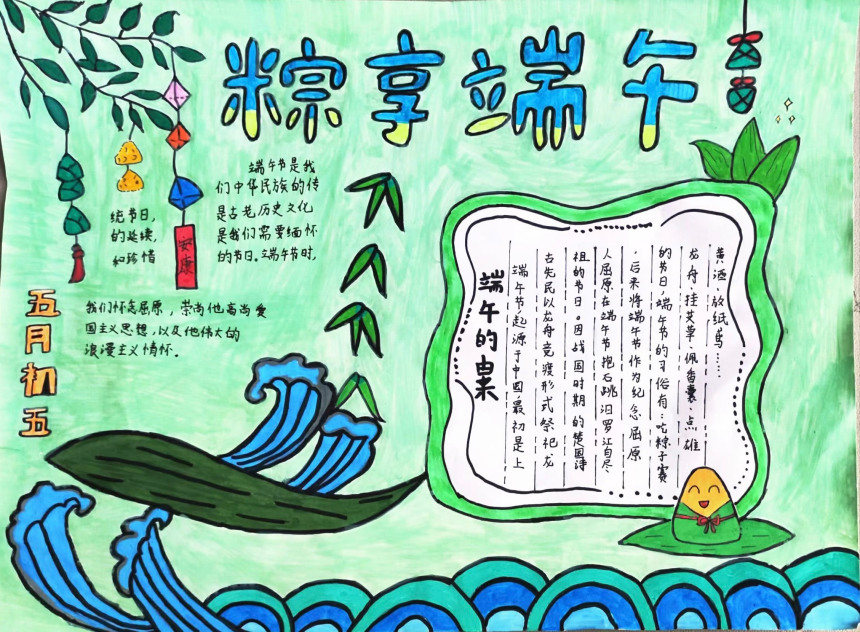 粽享端午
端午节是我
们中华民族的传
统节日,是古老历史文化
的延续,是我们需要缅怀
和珍惜的节日。端午节时,
我们怀念屈原,荣尚他高尚爱
国主义思想,以及他伟大的
浪漫主义情怀。
安康
五月初五
端午的由来
端午节,起源于中国,最初是上
古先民以龙舟竞渡形式祭祀龙
祖的节日。因战国时期的楚国诗
人屈原在端午节抱石跳汨罗江自尽,
后来将端午节作为纪念屈原
的节日,端午节的习俗有:吃粽子、赛
龙舟、挂艾草、佩香囊、点雄
黄酒、放纸鸢……